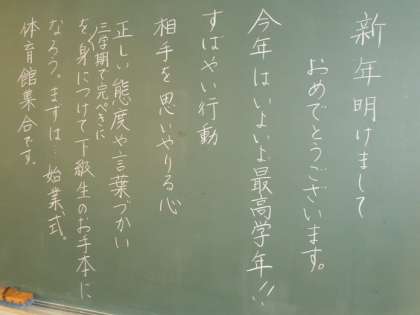 新年明けまして
おめでとうございます。
今年はいよいよ最高学年!!
すばやい行動
相手を思いやる心
正しい態度や言葉づかい
三学期で完ぺきに
を身につけて下級生のお手本に
なろう。まずは…始業式。
体育館集合です。